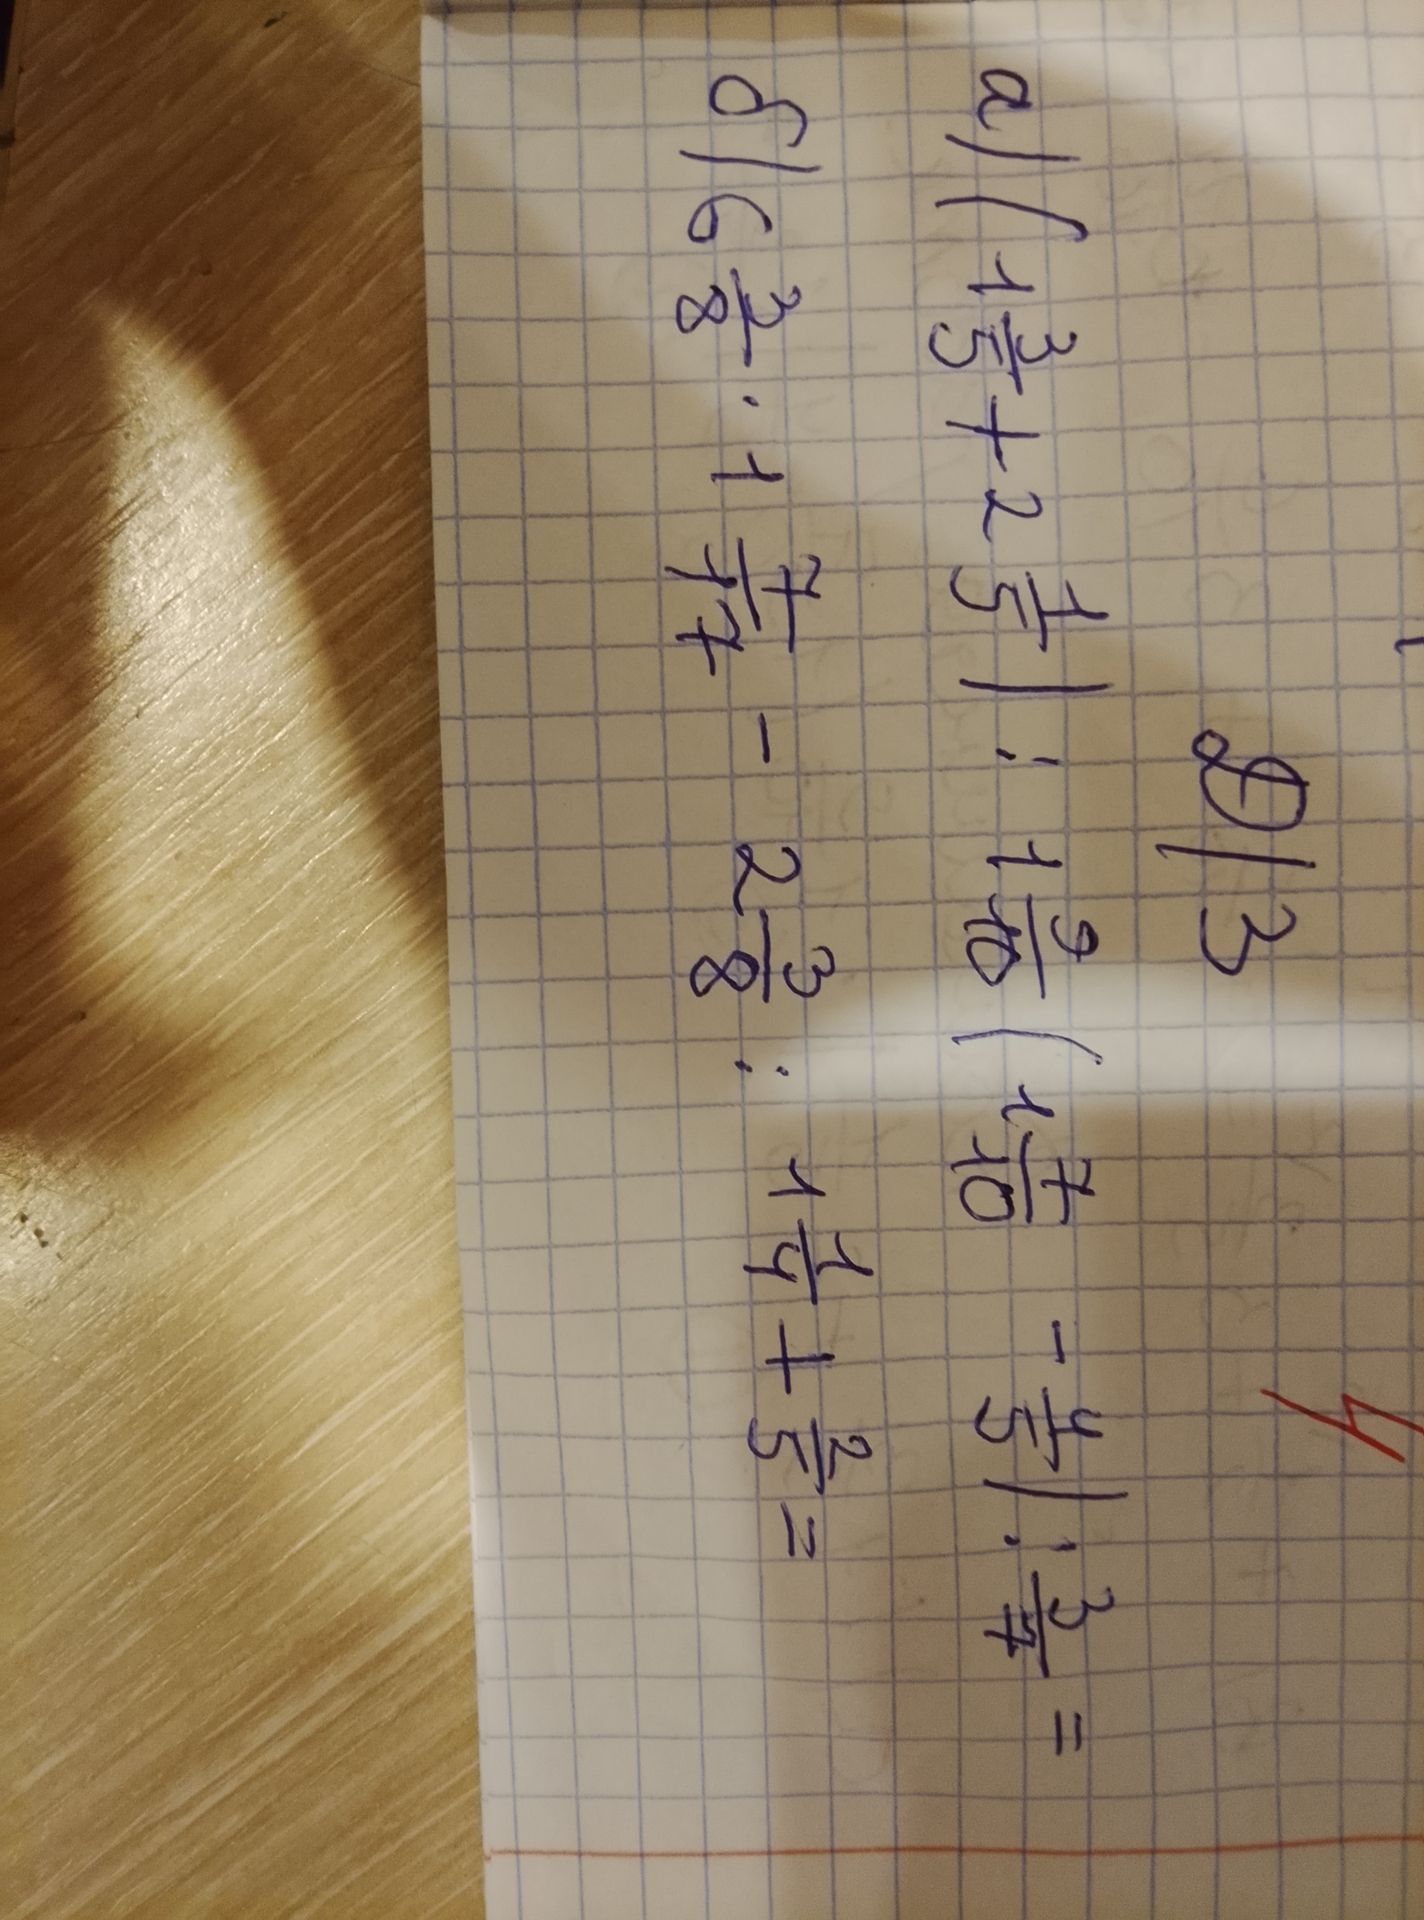 Д/З
а) (1 3/5 + 2 1/5) : 1 9/10 (1 7/10 - 4/5) : 3/7 =
б) 6 3/8 · 1 7/17 - 2 3/8 : 1 1/4 + 2/5 =